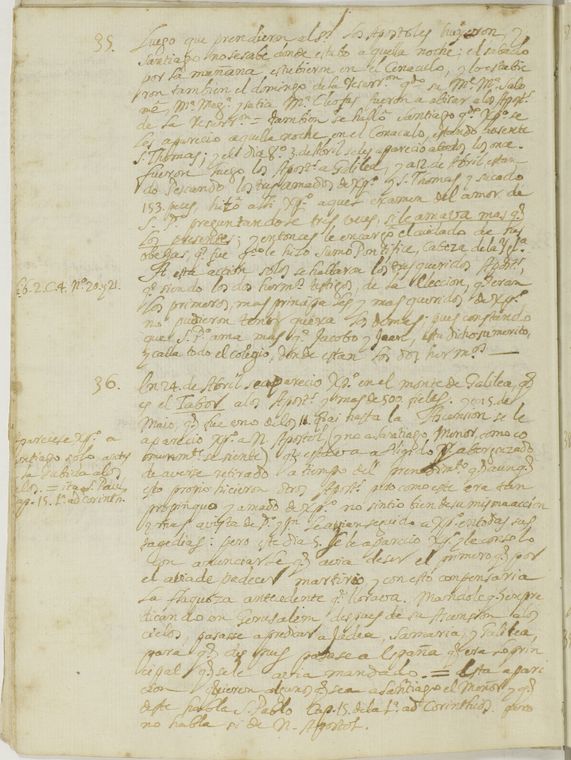 35. Luego que prendieron al Sr. los Apostoles huyeron, y
Santiago no se sabe donde estubo aquella noche; el sabado
por la mañana estubieron en el Cenaculo, y lo estubie
ron tambien el domingo de la Resurron. qdo. se Mª. Mª. Salo
mé, Mª. Mag.ª y la tia Mª. Cleofas fueron a abisar a los Apost.s
de la Resurron. = tambien se halló Santiago qdo. Xpo. se
les aparecio aquella noche en el Cenaculo, estando ausente
S. Thomas; y el dia 8º. 3. de Abril se les aparecio a todos los once.
fueron luego los Apost.s a Galilea, y a 12 de Abril estan
do Pescando los tres amados de Xpo. y S. Thomas y sacado
153. peces hizo alli Xpo. aquel examen del amor de
S. Po. preguntandole tres veces, si le amava mas q.
los presentes; y entonces le encargó el cuidado de sus
obejas, q. fue qdo. le hizo Sumo Pontifice, Cabeza de la Ygl.ª
A esta accion solos se hallaron los tres queridos Apost.s,
q. siendo los dos herm.s testigos, de la eleccion, q. eran
los primeros, mas principales y mas queridos de Xpo.
no pudieron tener quexa los demas: pues constando
que S. Po. ama mas q. Jacobo y Juan, esta dicho su merito,
y calla todo el colegio, donde estan los dos herm.s
Lb. 2. C. 4. Nº. 20. y 21.
36. En 24. de Abril se aparecio Xpo. en el monte de Galilea, q.
es el Tabor a los Apost.s y mas de 500. fieles. y a 5. de
Maio, q. fue uno de los 11. qai hasta la Ascension se le
aparecio Xpo. a N. Apostol, y no a Santiago Menor como co
munmte. se siente
de averse retirado a tiempo del prendimto. y aunq.
esto propio hicieron otros Apost.s pero como este era tan
propinquo y amado de Xpo. no sintio bien de su misma accion
y mas a vista de Po. y Jn. le avian seguido a Xp. en todas sus
tragedias: pero este dia 5. se le aparecio Xpo. y le consolo
con anunciarle q. avia de ser el primero q. por
el avia de padecer martirio, y con esto compensaria
la flaqueza antecedente q. llorava. Mandole q. siempre
dicando en Jerusalem despues de su Ascension a los
cielos, pasase a predicar a Judea, Samaria, y Galilea,
para q. despues pasase a España q. era lo prin
cipal q. se le avia mandado. = Esta apari
cion quieren algunos q. sea a Santiago el Menor y q.
deste habla S. Pablo Cap. 15. de la 1ª. ad Corinthios. pero
no habla si de N. Apostol.
Aparecese Xpo. a
Santiago solo antes
de subir a los
cielos. = ita q. Paul.
cap. 15. 1ª. ad Corinth.